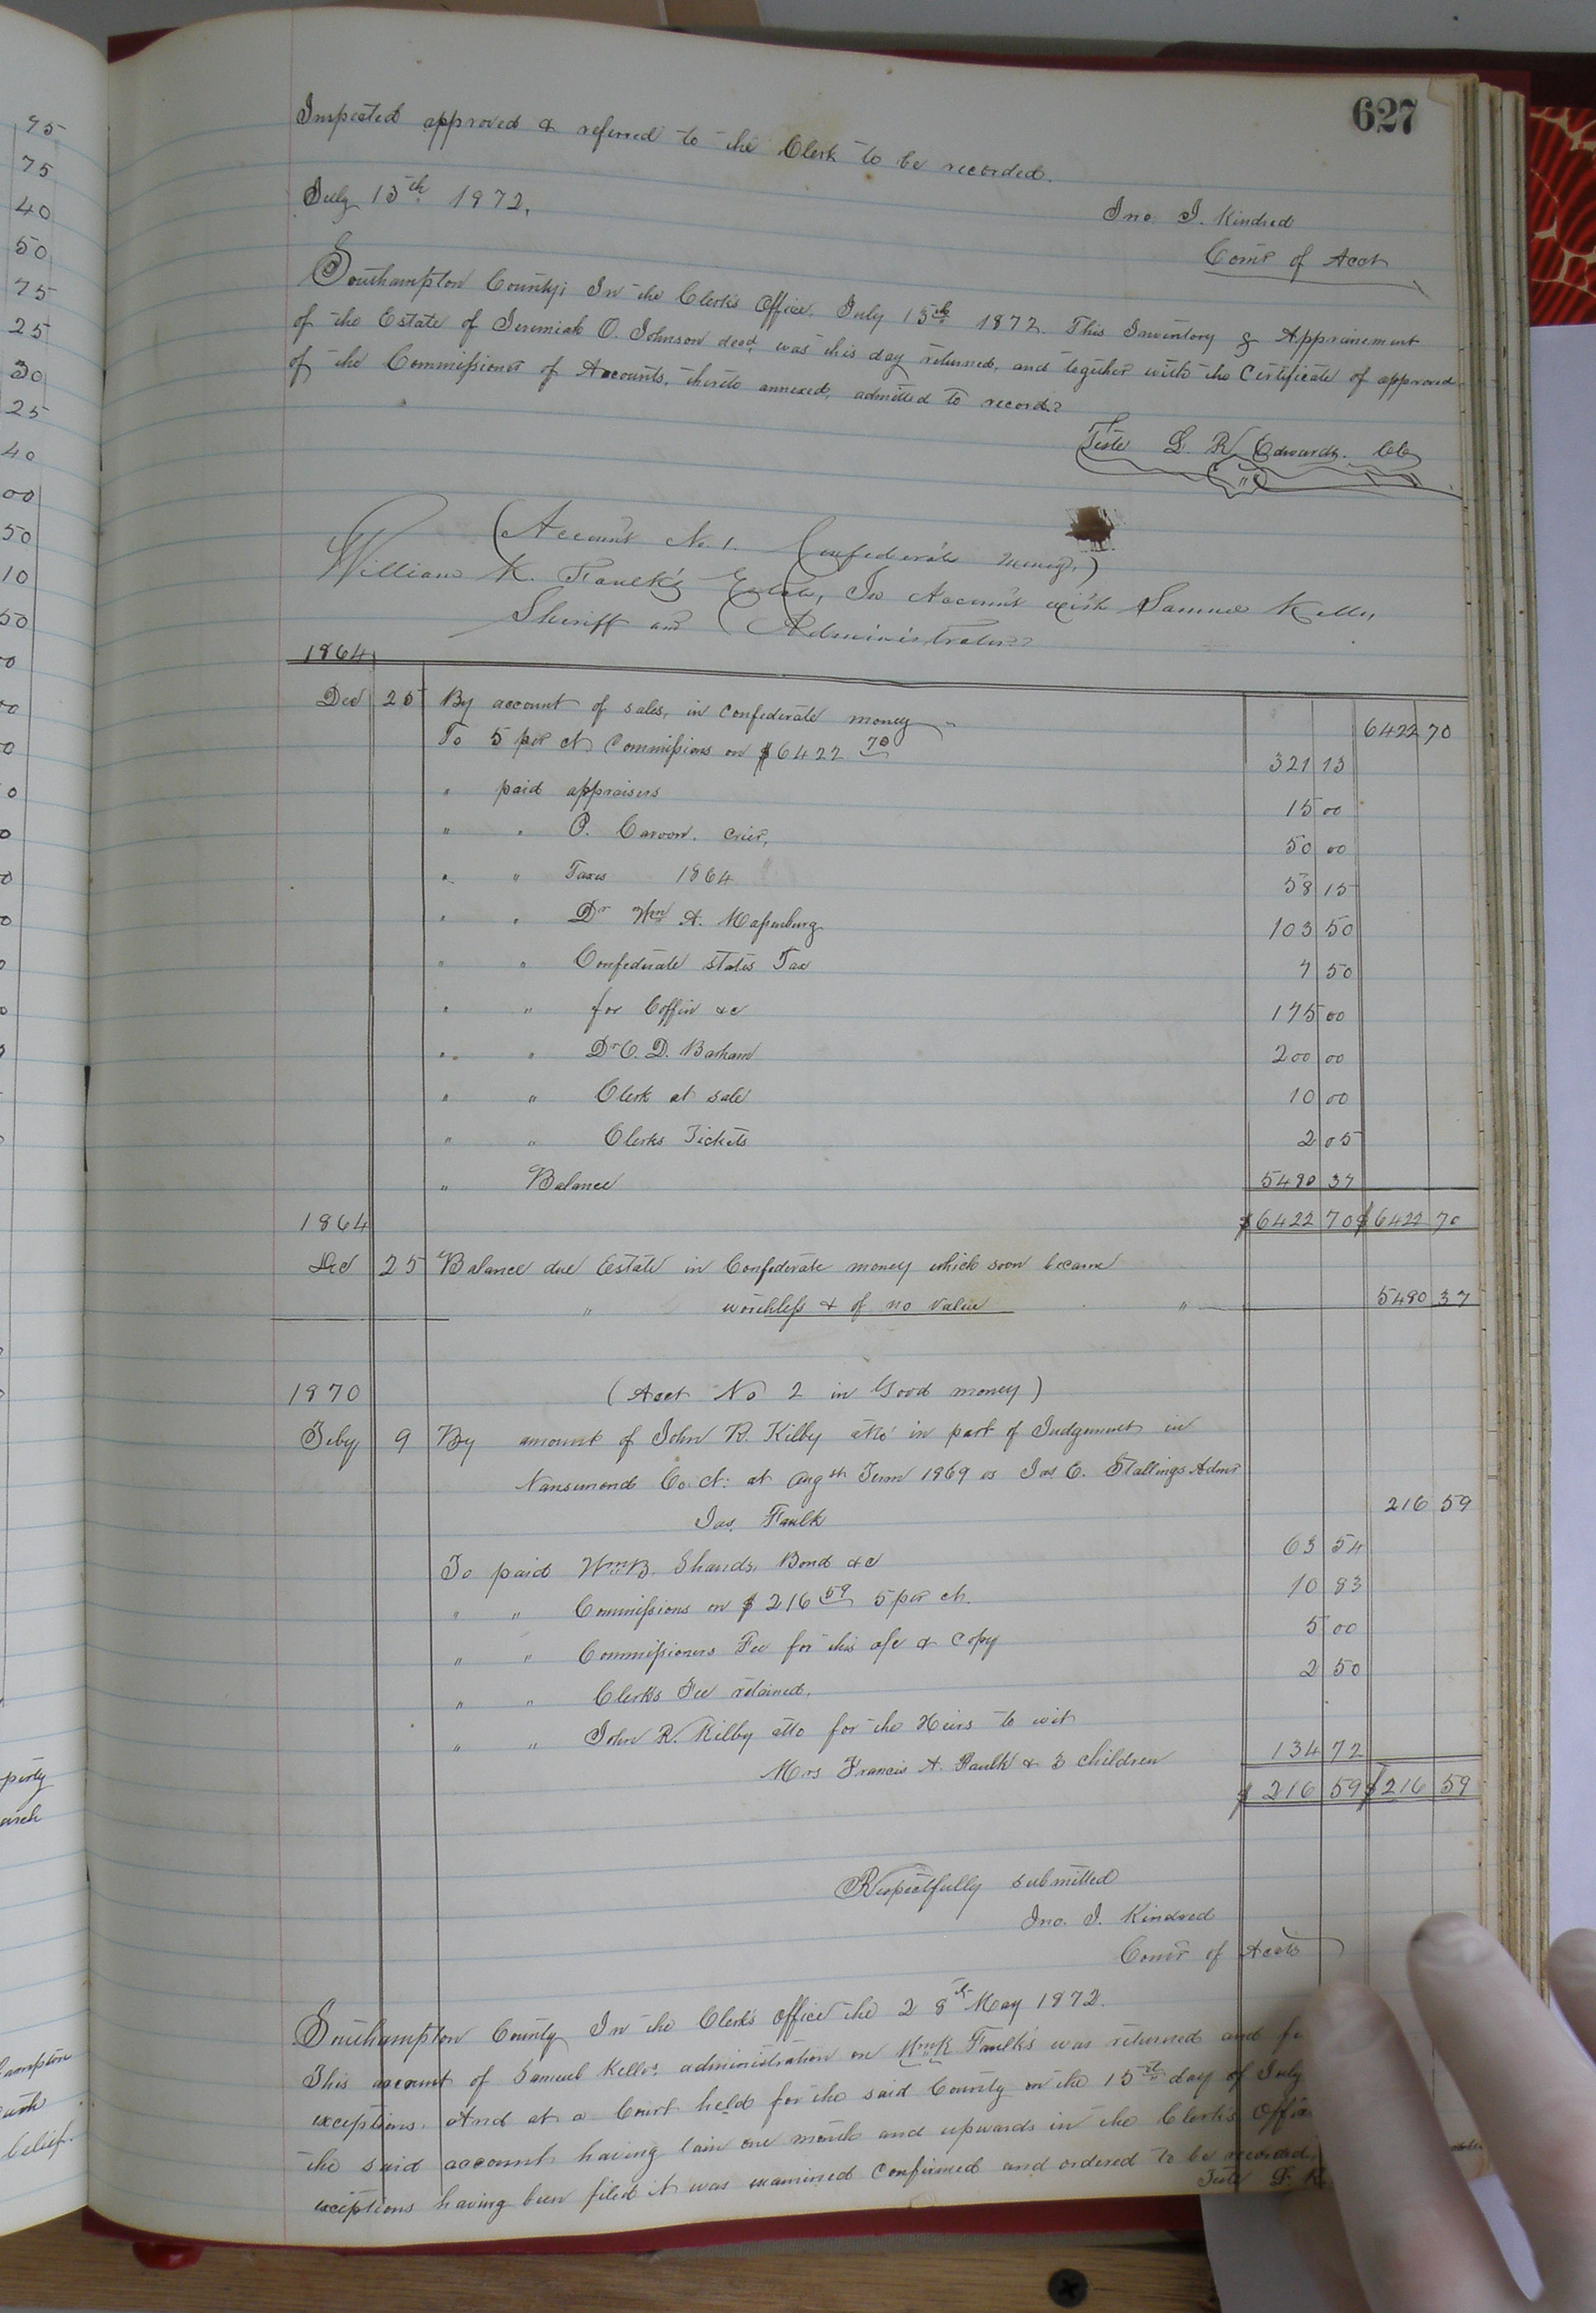 627
Inspected approved & referred to the Clerk to be recorded.
July 15th 1872.
Jno. J. Kindred
Comr of Accts
Southampton County; In the Clerk's Office. July 15th 1872. This Inventory & Appraisement
of the Estate of Jeremiah O. Johnson decd. was this day returned, and together with the Certificate of approval
of the Commissioner of Accounts, thereto annexed, admitted to record.
Teste L. R. Edwards. CC
(Account No. 1. Confederate money.)
William K. Faulk's Estate, In Account with Samuel Kello,
Sheriff and Administrator
1864
Dec 25 By account of sales, in confederate money " 6422 70
To 5 per ct Commissions on $6422 70 321 13
" paid appraisers 15 00
" " P. Carvon. crier, 50 00
" " Taxes 1864 58 15
" " Dr Wm A. Massenburg 103 50
" " Confederate States Tax 7 50
" " for Coffin &c 175 00
" " Dr C. D. Barham 200 00
" " Clerk at sale 10 00
" " Clerks Tickets 2 05
" Balance 5480 37
1864 $6422 70 $6422 70
Dec 25 Balance due Estate in Confederate money which soon became
" worthless & of no value " 5480 37
1870 (Acct No 2 in Good money)
Feby 9 By amount of John R. Kilby atto in part of Judgement in
Nansemond Co. Ct: at Augst Term 1869 vs Jas. C. Stallings Admr
Jas. Faulk 216 59
To paid Wm B. Shands, Bond &c 63 54
" " Commissions on $216 59 5 per ct. 10 83
" " Commissioners Fee for this a/c & copy 5 00
" " Clerk's Fee retained. 2 50
" " John R. Kilby atto for the Heirs to wit
Mrs Francis A. Faulk & 3 children 134 72
$216 59 $216 59
Respectfully submitted
Jno. J. Kindred
Comr of Accts
Southampton County In the Clerk's Office the 28th May 1872.
This account of Samuel Kello's administration on Wm K Faulk's was returned and
exceptions. And at a Court held for the said County on the 15th day of July
the said account having lain one month and upwards in the Clerk's Office
exceptions having been filed it was examined confirmed and ordered to be recorded
Teste L. R.